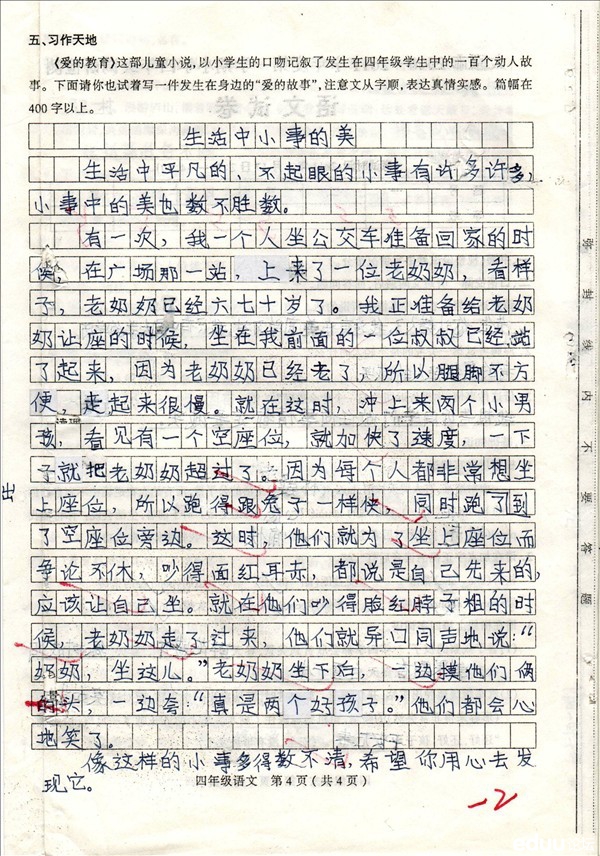 五、习作天地
《爱的教育》这部儿童小说，以小学生的口吻记叙了发生在四年级学生中的一百个动人故
事。下面请你也试着写一件发生在身边的“爱的故事”，注意文从字顺，表达真情实感。篇幅在
400字以上。
生活中小事的美
生活中平凡的、不起眼的小事有许多许多，
小事中的美也数不胜数。
有一次，我一个人坐公交车准备回家的时
候，在广场那一站，上来了一位老奶奶，看样
子，老奶奶已经六七十岁了。我正准备给老奶
奶让座的时候，坐在我前面的一位叔叔已经站
了起来，因为老奶奶已经老了，所以腿脚不方
便，走起来很慢。就在这时，冲上来两个小男
孩，看见有一个空座位，就加快了速度，一下
子就把老奶奶超过了。因为每个人都非常想坐
上座位，所以跑得跟兔子一样快，同时跑了到
了空座位旁边。这时，他们就为了坐上座位而
争论不休，吵得面红耳赤，都说是自己先来的，
应该让自己坐。就在他们吵得脸红脖子粗的时
候，老奶奶走了过来，他们就异口同声地说：“
奶奶，坐这儿。”老奶奶坐下后，一边摸他们俩
的头，一边夸：“真是两个好孩子。”他们都会心
地笑了。
像这样的小事多得数不清，希望你用心去发
现它。
四年级语文 第4页（共4页）
-2
弥封线内不要答题